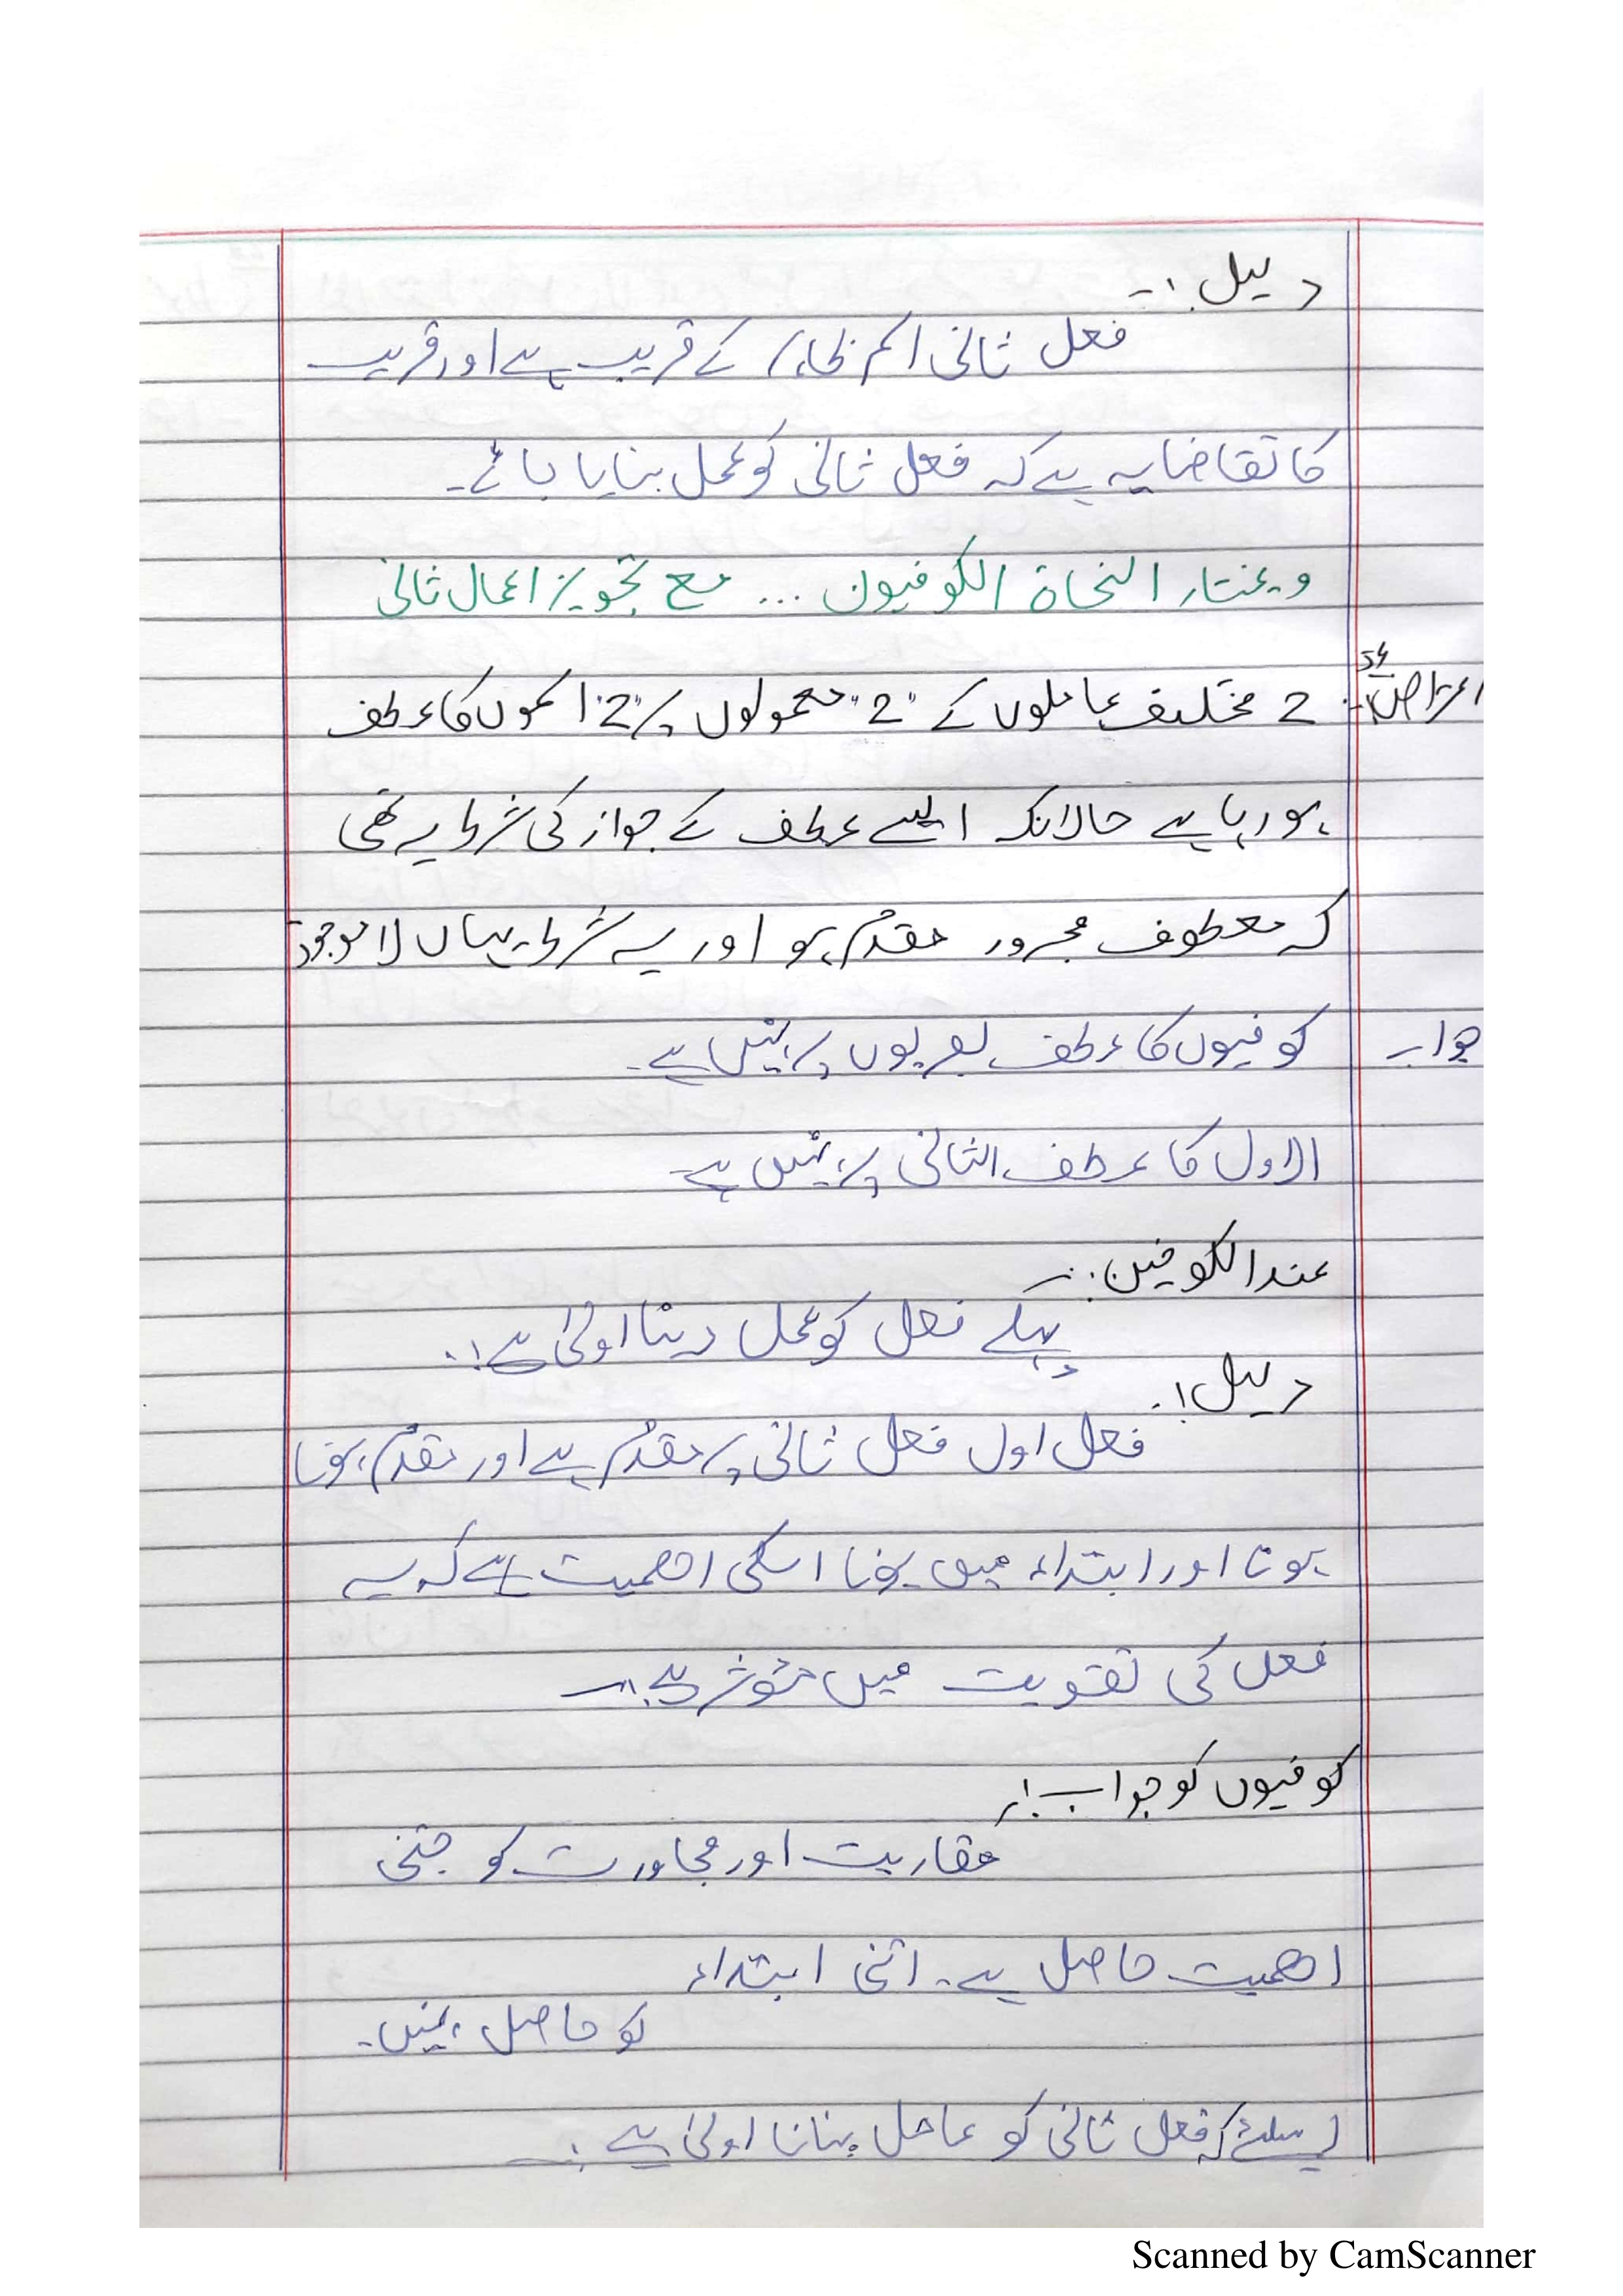 دلیل :-
فعل ثانی اسم ظاہر کے قریب ہے اور قریب
کا تقاضا یہ ہے کہ فعل ثانی کو عمل بنایا جائے۔
ویختار النحاة الکوفیون ... مع تجویز اعمال ثانی
اعتراض :- 2 مختلف عاملوں کے "2" معمولوں پر "2" اسموں کا عطف
ہو رہا ہے حالانکہ ایسے عطف کے جواز کی شرط یہ تھی
کہ معطوف مجرور مقدم ہو اور یہ شرط یہاں لا موجود
جواب کوفیوں کا عطف بصریوں پر نہیں ہے۔
الاول کا عطف الثانی پر نہیں ہے۔
عند الکوفین :-
پہلے فعل کو عمل دینا اولیٰ ہے :.
دلیل :.
فعل اول فعل ثانی پر مقدم ہے اور مقدم ہونا
ہونا اور ابتداء میں ہونا اسکی اھمیت ہے کہ یہ
فعل کی تقویت میں مؤثر ہے :-
کوفیوں کو جواب :-
مقاربت اور مجاورت کو جتنی
اھمیت حاصل ہے۔ اتنی ابتداء
کو حاصل نہیں۔
اسلئے کہ فعل ثانی کو عامل بنانا اولیٰ ہے :-
Scanned by CamScanner